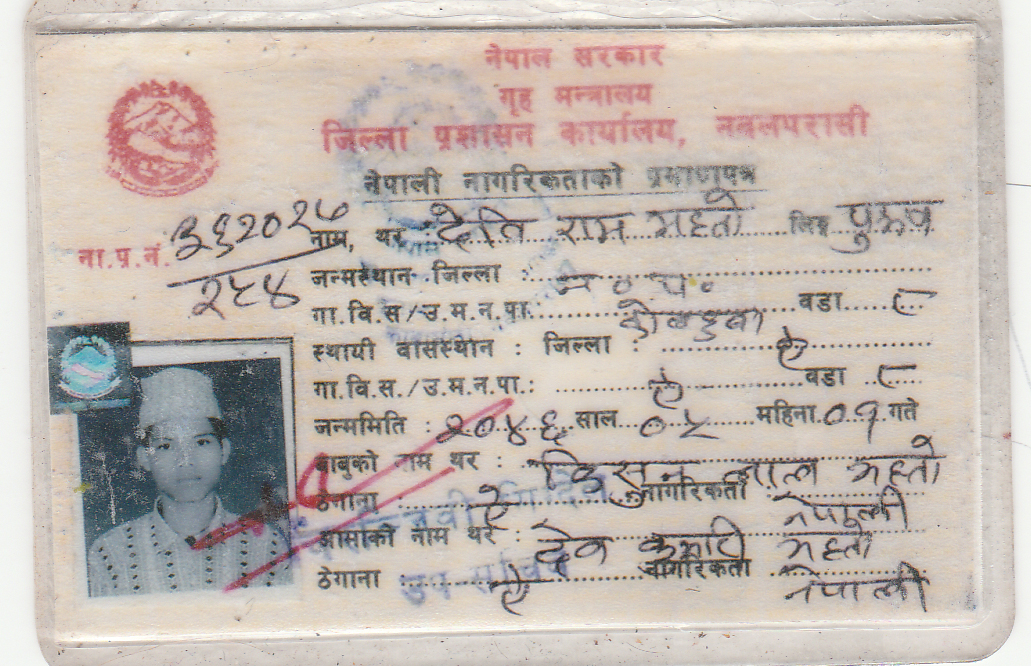 नेपाल सरकार
गृह मन्त्रालय
जिल्ला प्रशासन कार्यालय, नवलपरासी
नेपाली नागरिकताको प्रमाणपत्र
ना.प्र.नं.
नाम, थर : राम महतो लिङ्ग पुरुष
जन्मस्थान जिल्ला : न॰ प॰
गा.वि.स/उ.म.न.पा: वडा ८
स्थायी वासस्थान : जिल्ला : ऐ
गा.वि.स./उ.म.न.पा.: ऐ वडा ८
जन्ममिति : २०४६ साल ०५ महिना ०१ गते
बाबुको नाम थर : किसुन लाल महतो
ठेगाना : ऐ नागरिकता : नेपाली
आमाको नाम थर : देव कुमारी महतो
ठेगाना ऐ नागरिकता नेपाली